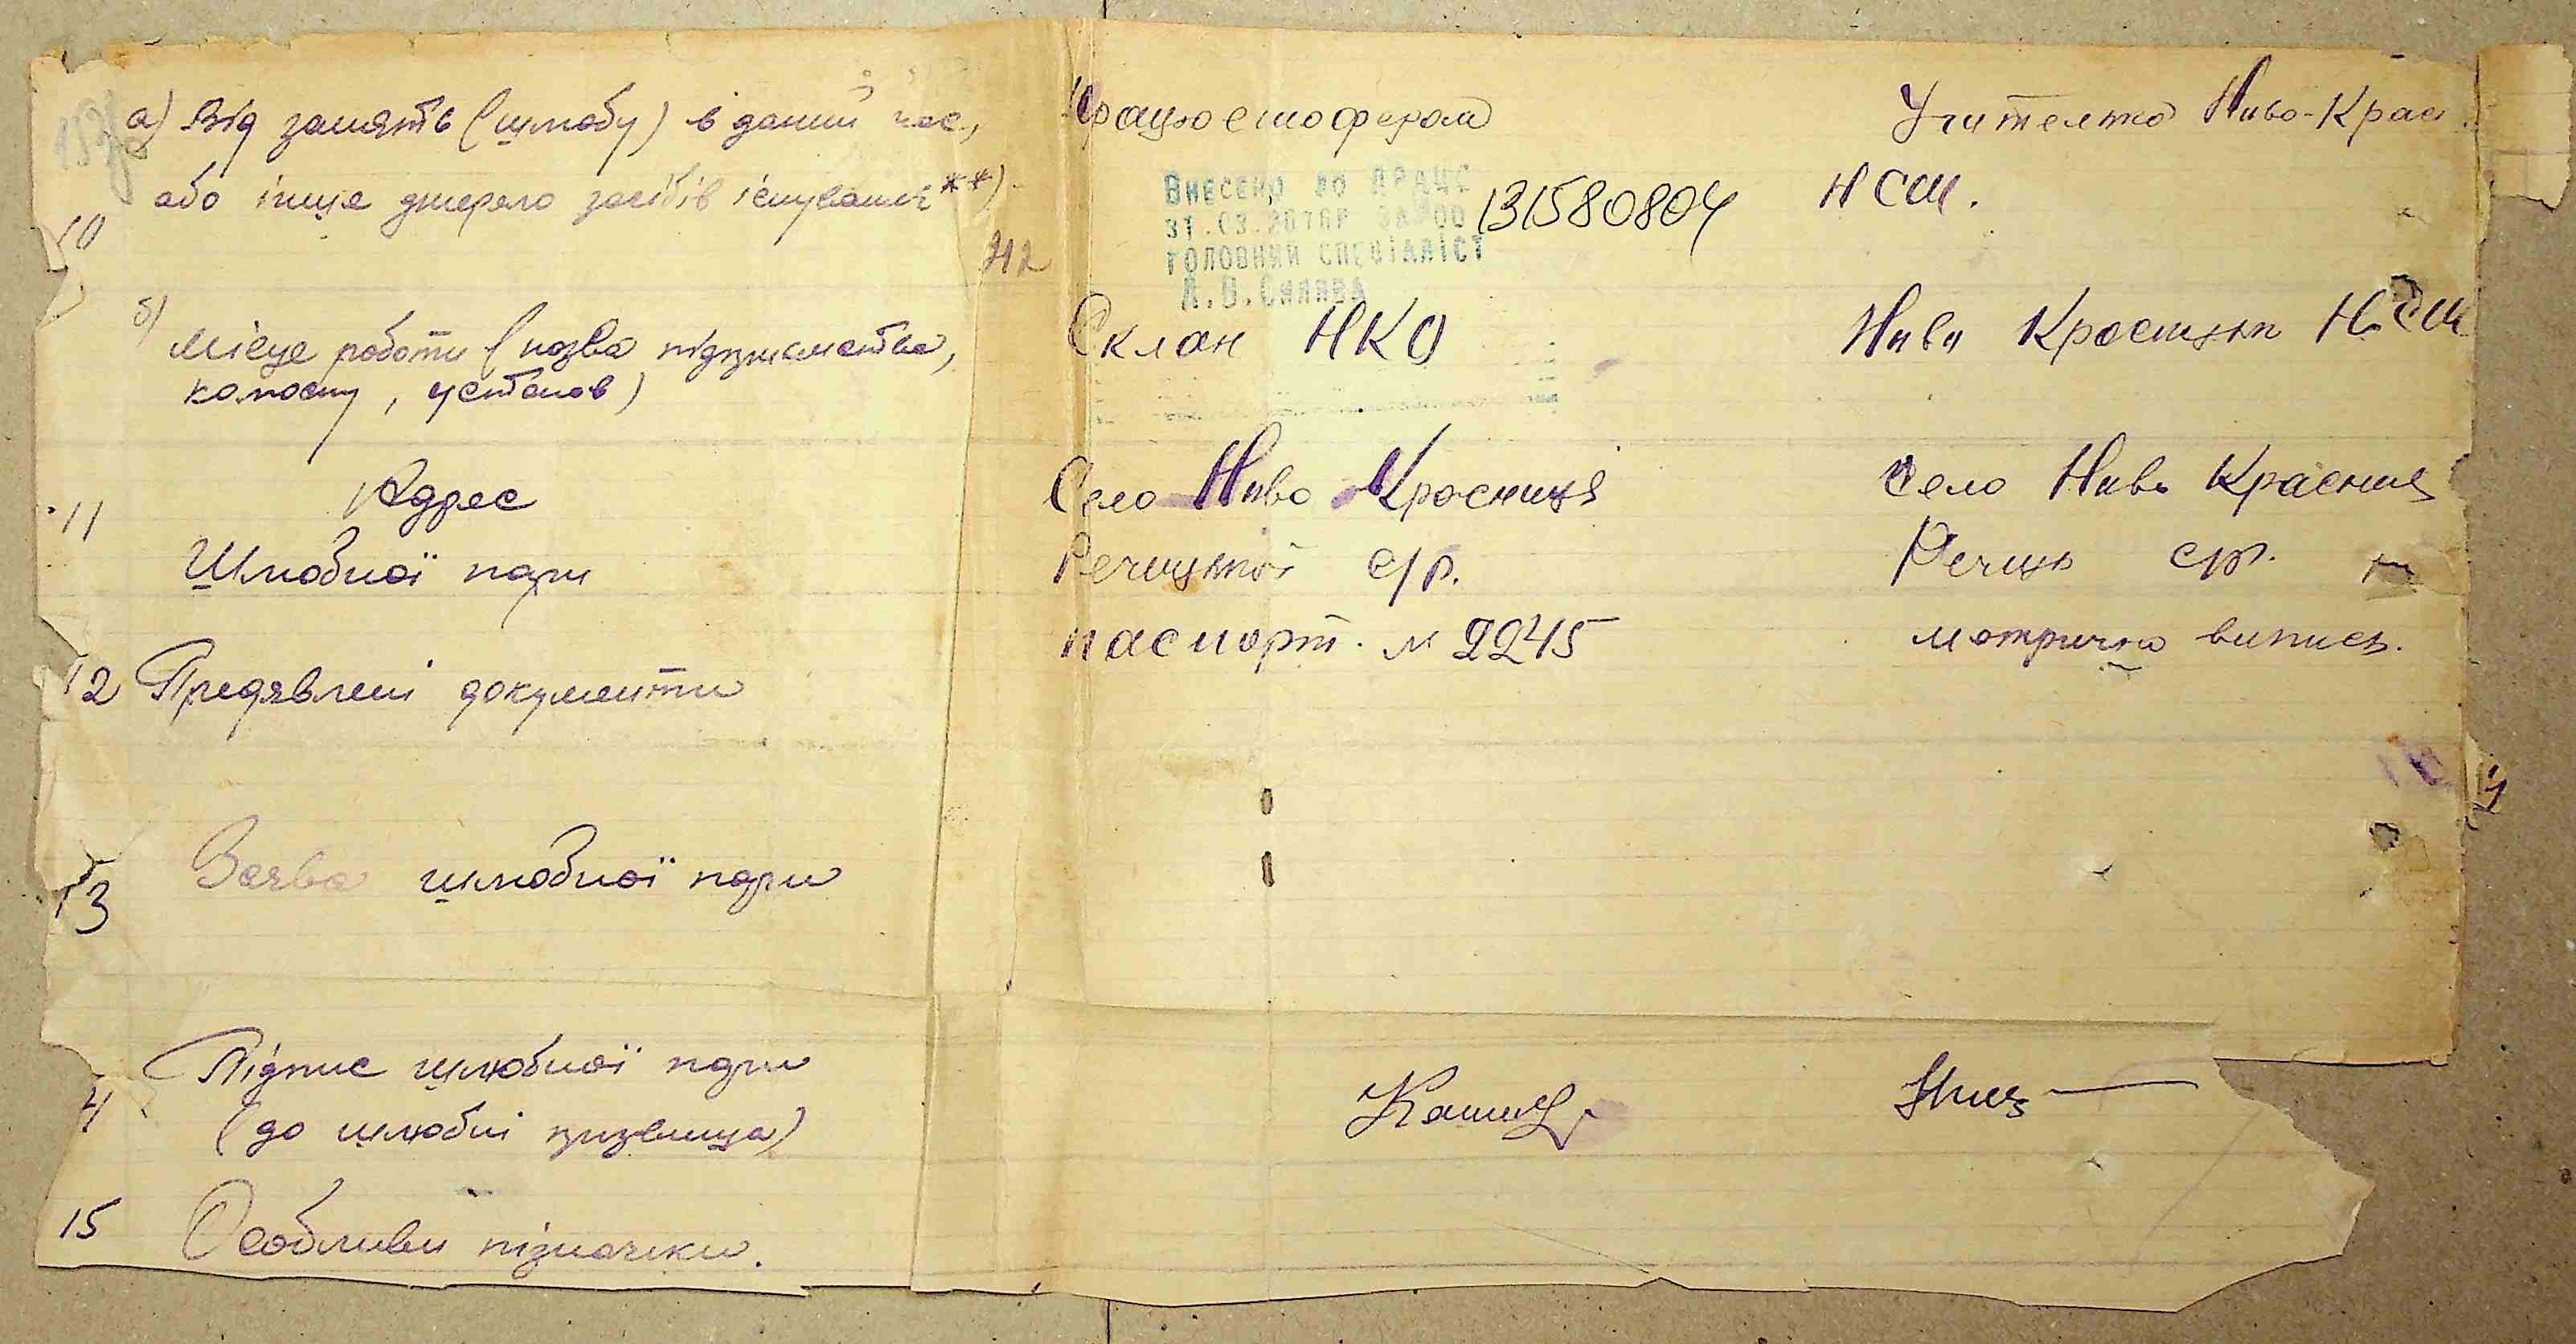 а) Від занять (шлюбу) в даний час,
або інше джерело засобів існування **)
10
Працює шофером
Учителка Ниво-Крас.
НСШ.
Внесено до ДРАЦС
31.03
131580804
головний спеціаліст
А.В.
б)
Місце роботи (назва підприємства,
колоспу, установ)
Склад НКО
Ниво Красицька НСШ
11
Адрес
Шлюбної пари
Село Ниво Красниця
Речицької с/р.
Село Ниво Красниця
Речиць с/р.
12 Предявлені документи
паспорт. № 2245
метрична випись.
13 Заява шлюбної пари
4 Підпис шлюбної пари
(до шлюбні призвища)
15 Особливи пізначки.